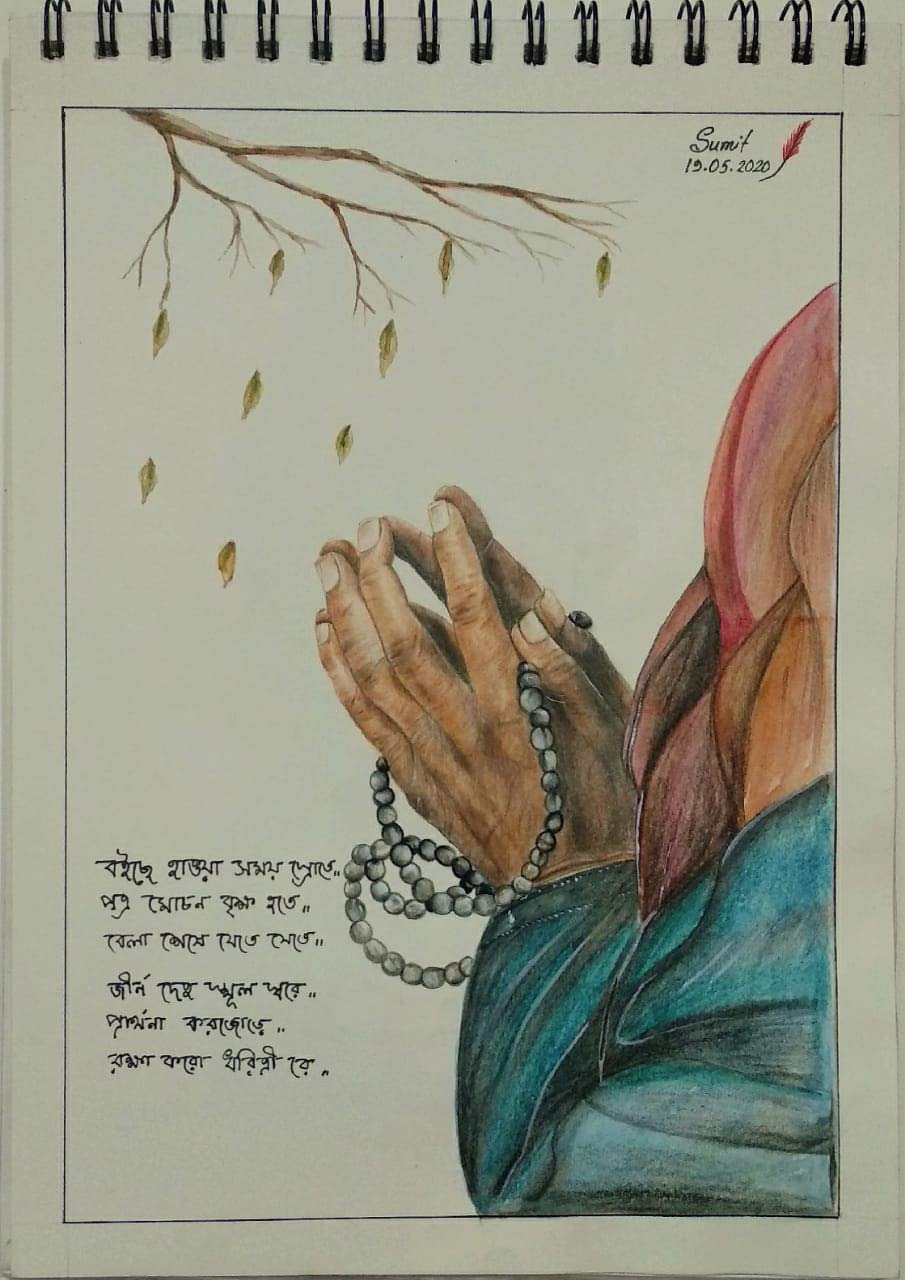 Sumit
19.05.2020
বইছে হাওয়া সময় স্রোতে..
পত্র মোচন বৃক্ষ হতে..
বেলা শেষে যেতে যেতে..
জীর্ন দেহ স্থূল স্বরে..
প্রার্থনা করজোড়ে..
রক্ষা করো ধরিত্রী রে..